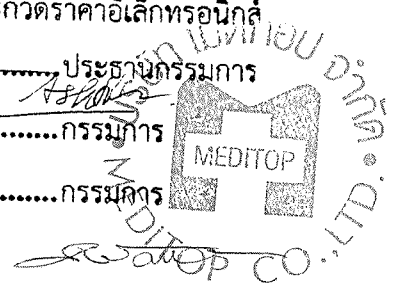 กวดราคาอิเล็กทรอนิกส์
........ประธานกรรมการ
........กรรมการ
........กรรมการ
บริษัท เมดิทอป จำกัด
MEDITOP
MEDITOP CO.,LTD.